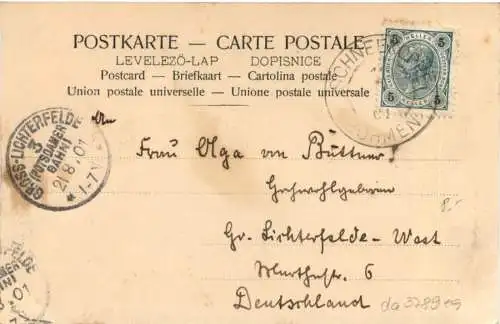 POSTKARTE — CARTE POSTALE
LEVELEZÖ-LAP DOPISNICE
Postcard — Briefkaart — Cartolina postale
Union postale universelle — Unione postale universale
5 HELLER 5
GROSS-LICHTERFELDE
3
(POTSDAMER
BAHN)
21.8.01
1-7
An
Frau Olga von Büttner
Hochwohlgeboren
Gr. Lichterfelde-West
6
Deutschland
da3289eg